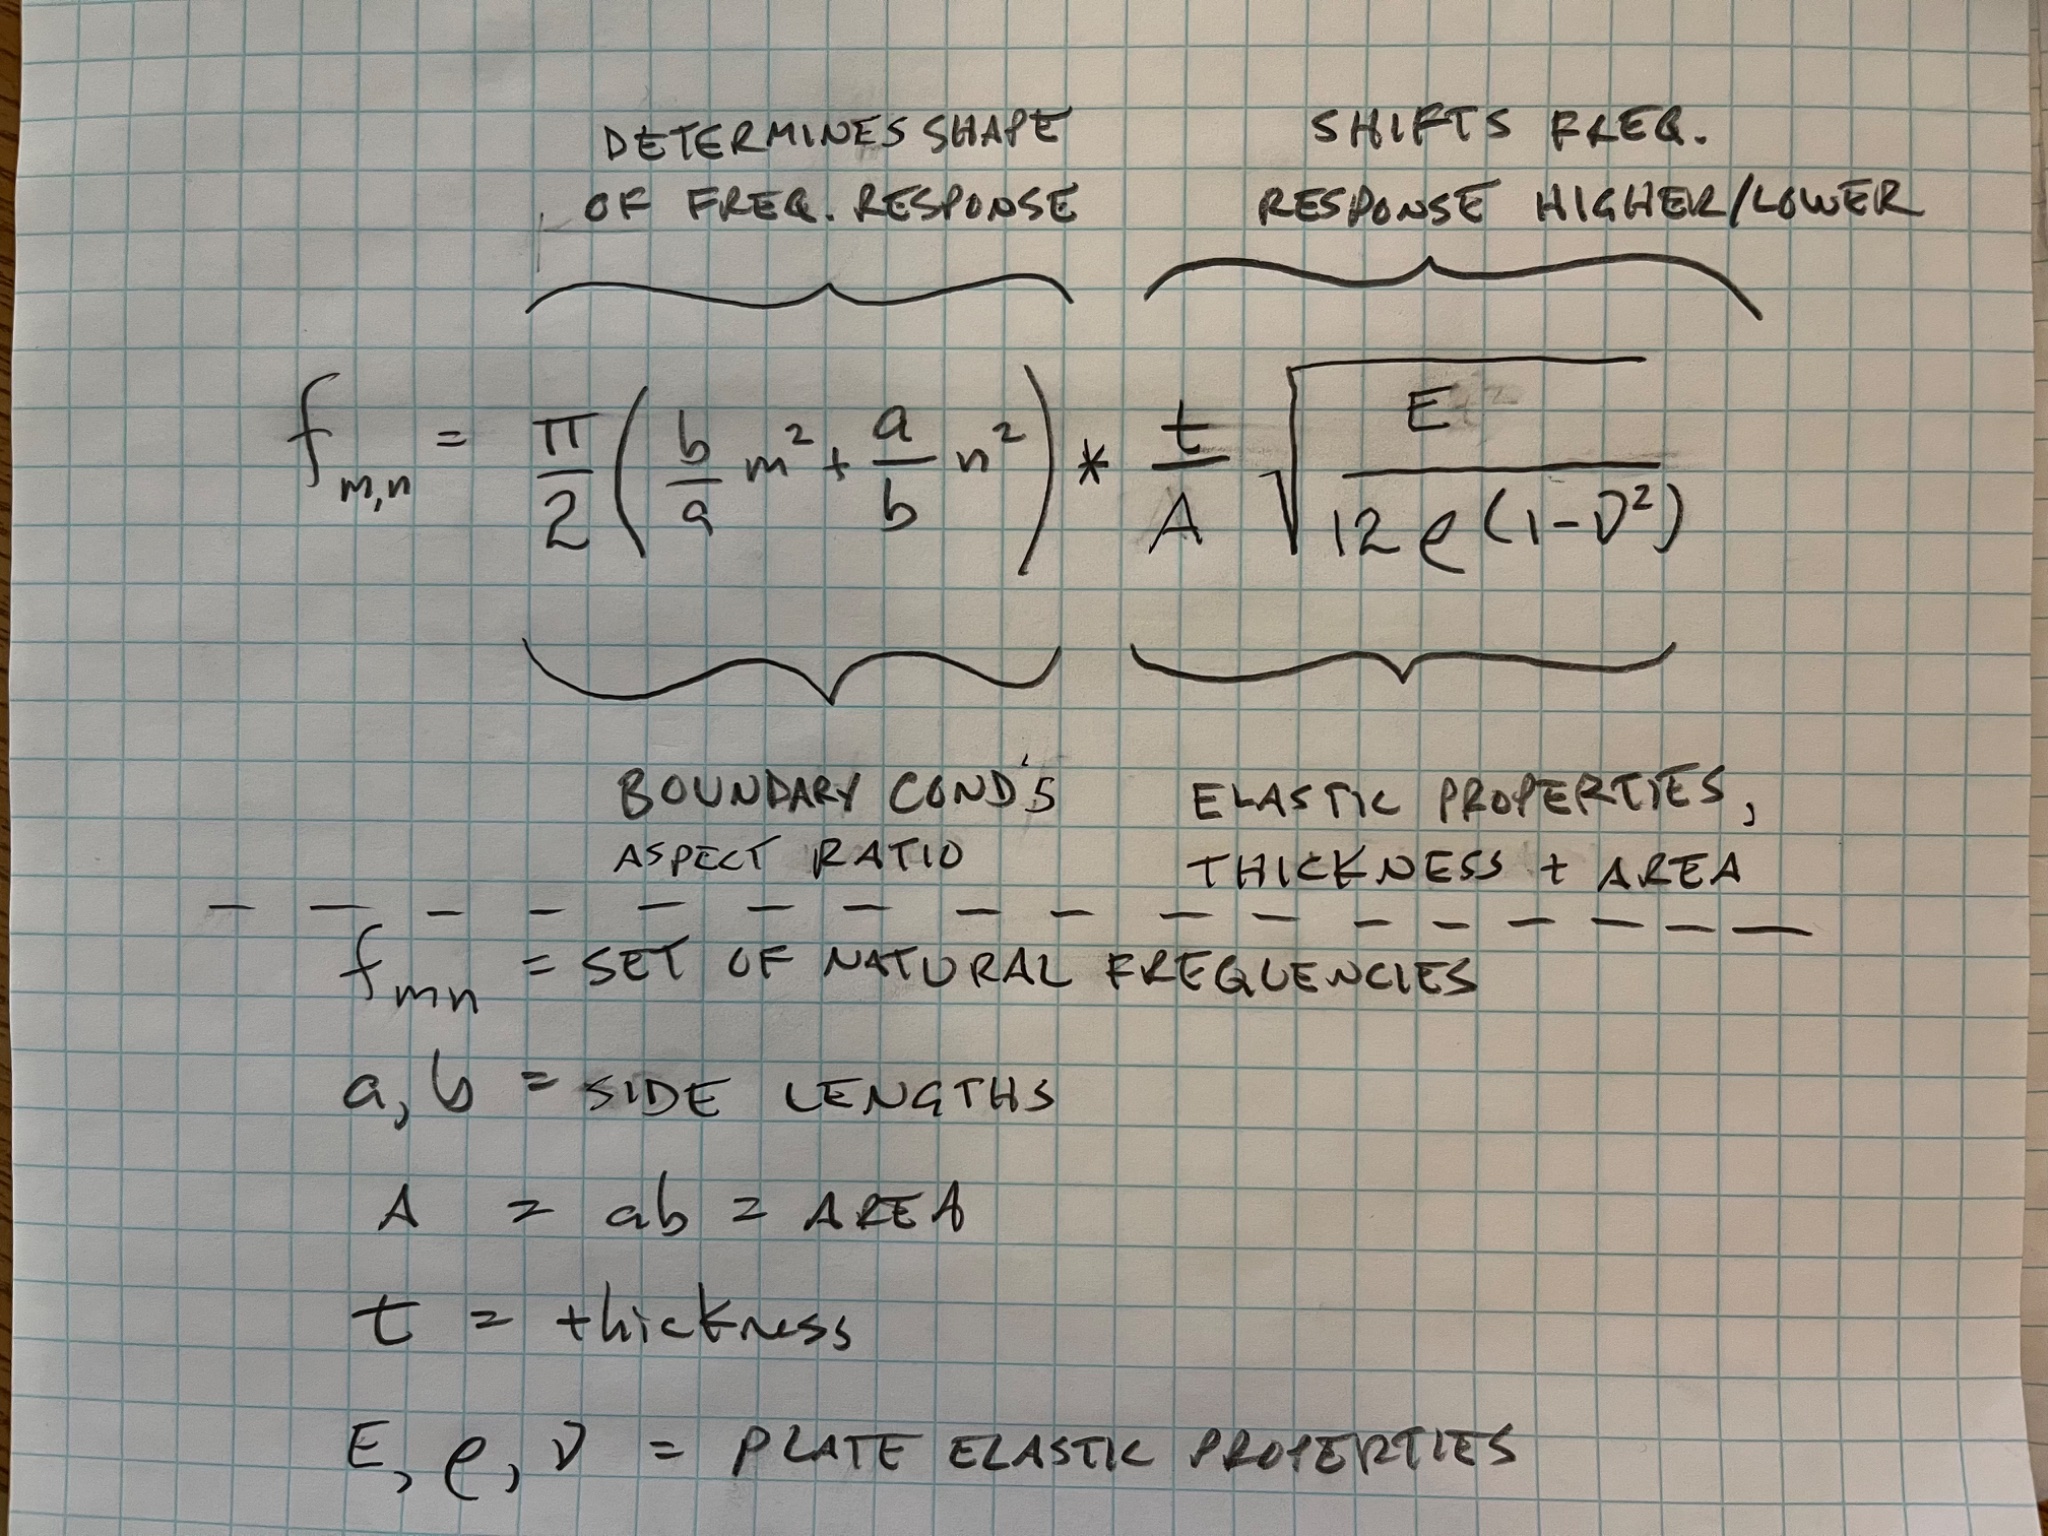 DETERMINES SHAPE
OF FREQ. RESPONSE
SHIFTS FREQ.
RESPONSE HIGHER/LOWER
f_{m,n} = π/2 (b/a m² + a/b n²) * t/A √(E / 12ρ(1-ν²))
BOUNDARY COND'S
ASPECT RATIO
ELASTIC PROPERTIES,
THICKNESS + AREA
f_{mn} = SET OF NATURAL FREQUENCIES
a, b = SIDE LENGTHS
A = ab = AREA
t = thickness
E, ρ, ν = PLATE ELASTIC PROPERTIES